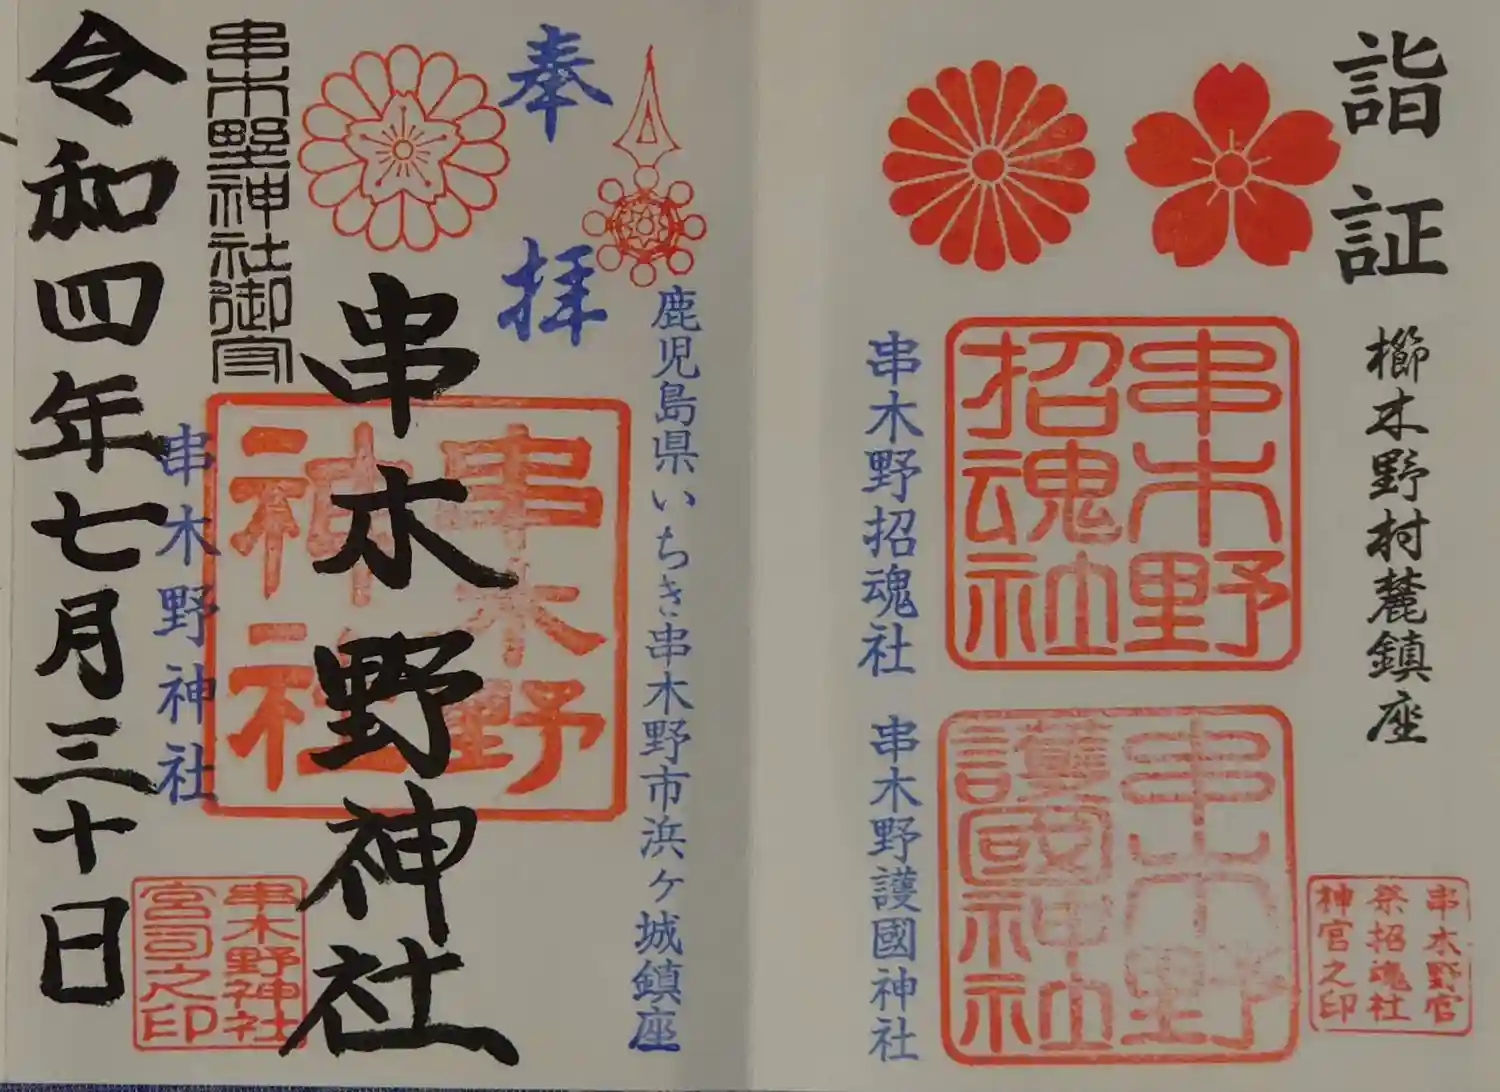 詣証
櫛木野村麓鎮座
串木野招魂社
串木野護國神社
串木野官
祭招魂社
神官之印
串木野招魂社
串木野護國神社
鹿児島県いちき串木野市浜ヶ城鎮座
奉拝
串木野神社
串木野神社
串木野神社
宮司之印
串木野神社御宮
串木野神社
令和四年七月三十日